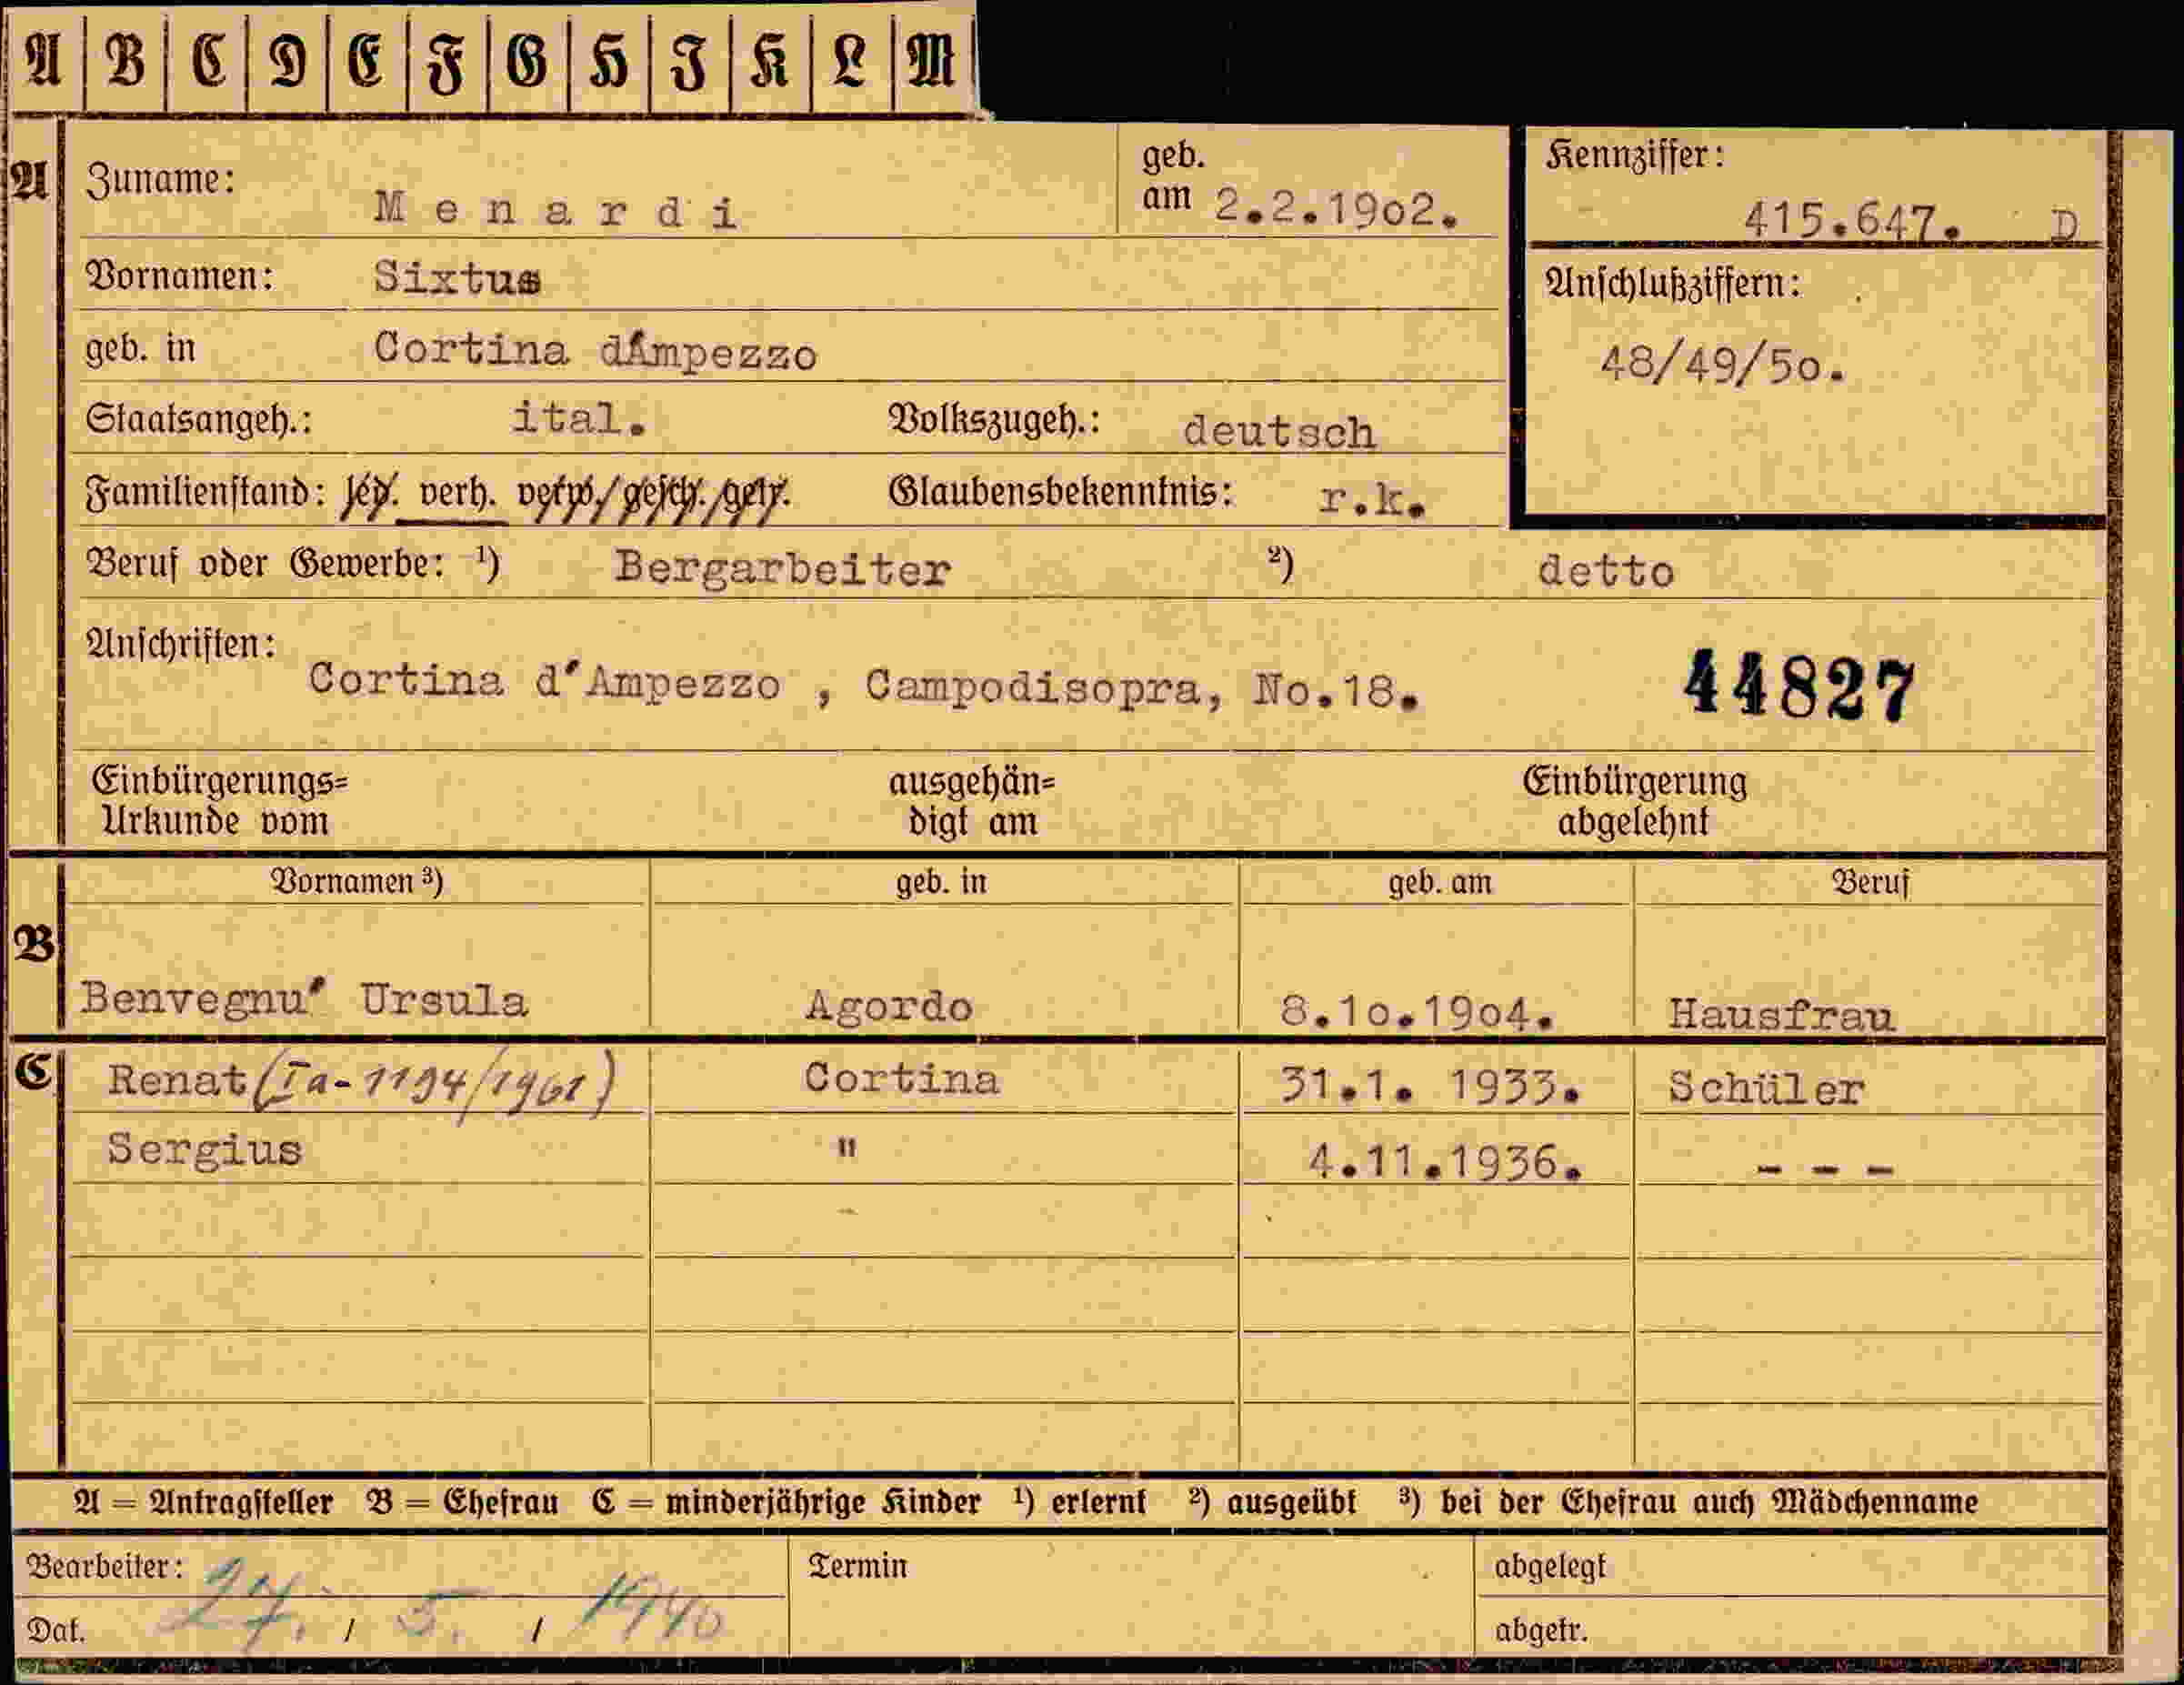 A B C D E F G H I K L M
A
Zuname: Menardi geb. am 2.2.1902. Kennziffer: 415.647. D
Vornamen: Sixtus Anschlußziffern:
geb. in Cortina d'Ampezzo 48/49/50.
Staatsangeh.: ital. Volkszugeh.: deutsch
Familienstand: led. verh. verw./gesch./getr. Glaubensbekenntnis: r.k.
Beruf oder Gewerbe: ¹) Bergarbeiter ²) detto
Anschriften:
Cortina d'Ampezzo , Campodisopra, No.18. 44827
Einbürgerungs= ausgehän= Einbürgerung
Urkunde vom digt am abgelehnt
Vornamen ³) geb. in geb. am Beruf
B
Benvegnu' Ursula Agordo 8.10.1904. Hausfrau
C Renat (Ia-1194/1961) Cortina 31.1. 1933. Schüler
Sergius " 4.11.1936. - - -
A = Antragsteller B = Ehefrau C = minderjährige Kinder ¹) erlernt ²) ausgeübt ³) bei der Ehefrau auch Mädchenname
Bearbeiter: Termin abgelegt
Dat. 27. / 5. / 1940 abgetr.